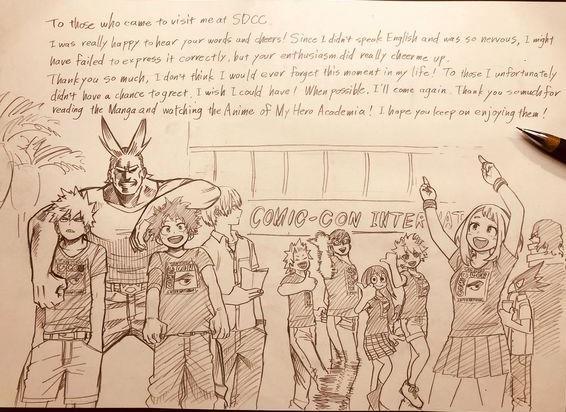 To those who came to visit me at SDCC.
I was really happy to hear your words and cheers! Since I didn't speak English and was so nervous, I might
have failed to express it correctly, but your enthusiasm did really cheer me up.
Thank you so much, I don't think I would ever forget this moment in my life! To those I unfortunately
didn't have a chance to greet, I wish I could have! When possible, I'll come again. Thank you so much for
reading the Manga and watching the Anime of My Hero Academia! I hope you keep on enjoying them!
COMIC-CON INTERNAT